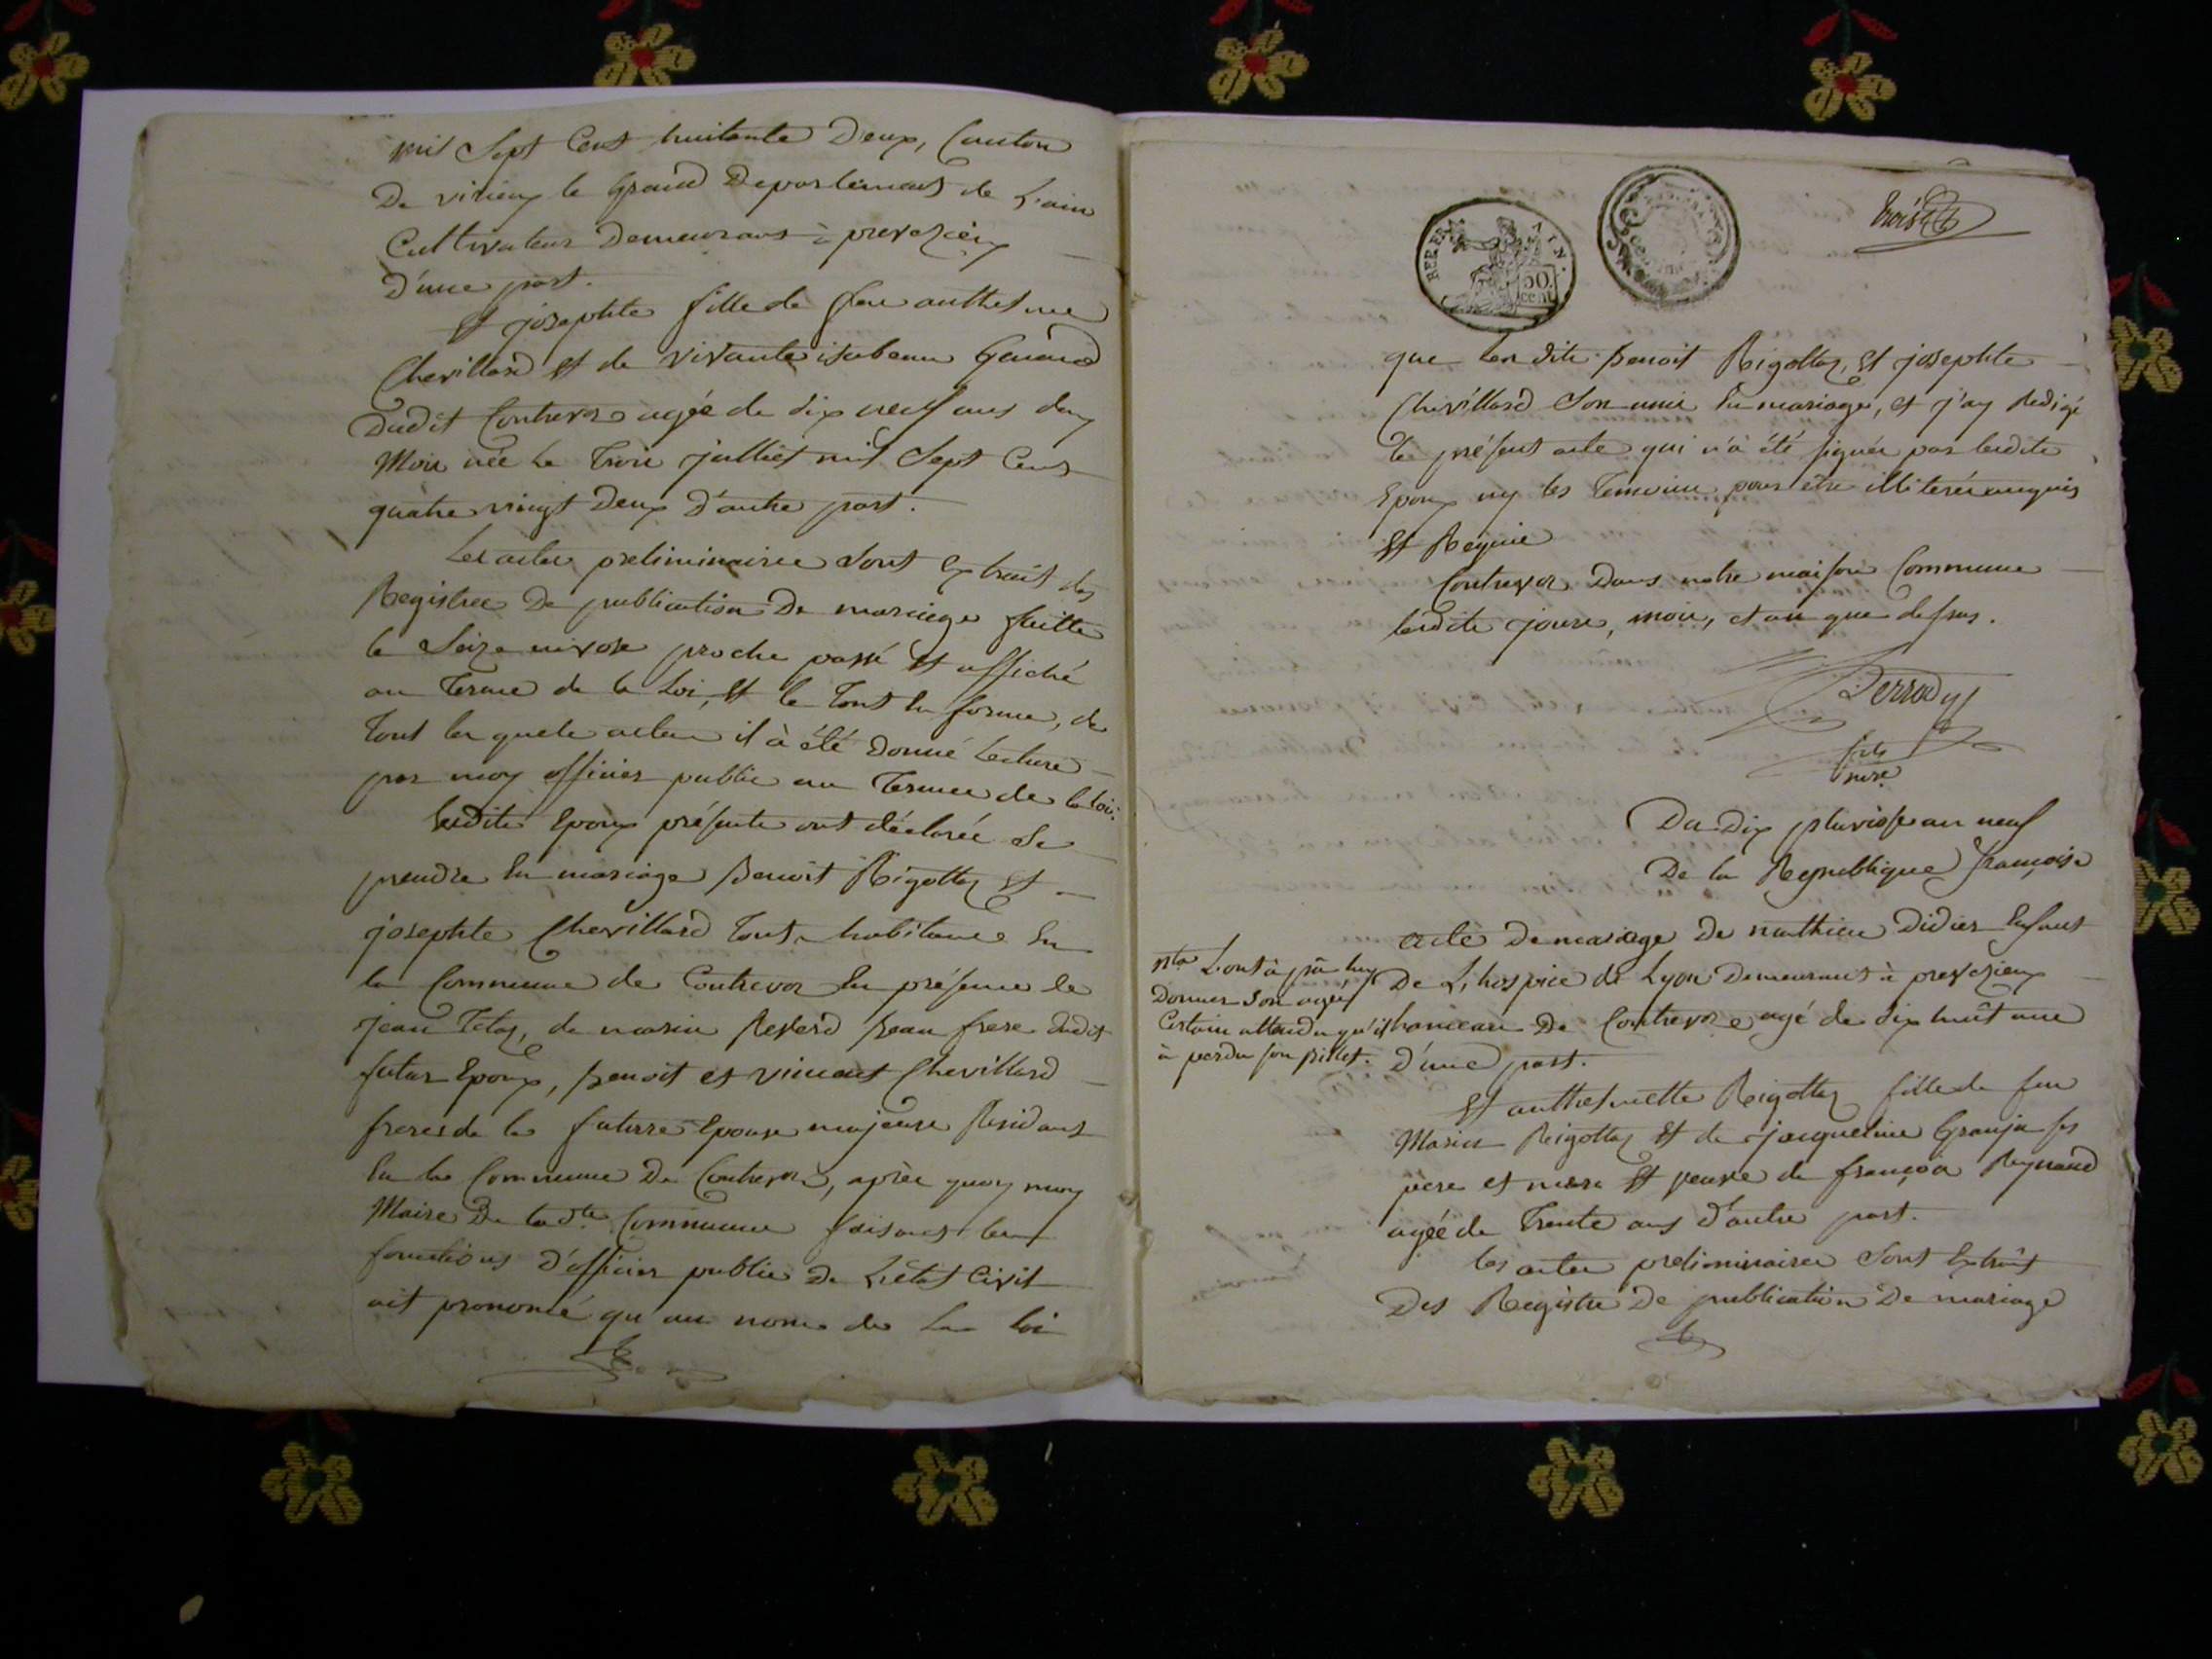 mil Sept Cent huitante Deux, Canton
De virieux le Grand Departement de L'ain
Cultivateur Demeurant à preveyzieux
D'une part.
Et josephte fille de feu anthelme
Chevillard et de vivante isabeau
Dudit Contrevoz agée de dix neuf ans deux
Mois née le Trois julliet mil Sept Cent
quatre vingt Deux D'autre part.
Les actes preliminaires Sont Extrait des
Registres De publication De mariage faitte
le Seize nivose proche passé Et affiché
au Terme de la Loi, Et le Tout En forme, de
Tout les quels actes il à été Donné Lecture
par moy officier public au Terme de la loi.
lesdits Epoux présents ont déclarée Se
prendre En mariage Benoit Rigottaz Et
josephte Chevillard Tous habitants En
la Commune de Contrevoz En présence de
jean de marin beau frere dudit
futur Epoux, Benoit et vincent Chevillard
freres de la futurre Epouse majeurs Résidant
En la Commune De Contrevoz, après quoy moy
Maire De ladte Commune faisant les
fonctions D'officier public De L'état Civil
ait prononcé qu'au nom de La loi
BERER AIN.
50 cent
trois
que Les dits Benoit Rigottaz, Et josephte
Chevillard Son unis En mariage, et j'ay Redigé
le présent acte qui n'à été signée par lesdits
Epoux ny les Temoins pour être illiteré enquis
Et Requis
Contrevoz Dans notre maison Commune
lesdits jours, mois, et an que dessus.
Perrody
mre
Du Dix pluviose an neuf
De la Republique françoise
acte De mariage De mathieu Didier Enfant
De L'hospice de Lyon Demeurant à preveyzieux
hameau De Contrevoz agé de dix huit ans
D'une part.
nta L'ont à pû luy
Donner Son agée
Certain attendu qu'il
à perdu son Billet.
Et anthelmette Rigottaz fille de feu
Marin Rigottaz Et de jacqueline Granja ses
pere et mere Et veuve de françois Reynaud
agée de Trente ans d'autre part.
les actes preliminaires Sont Extrait
Des Registre De publication De mariage